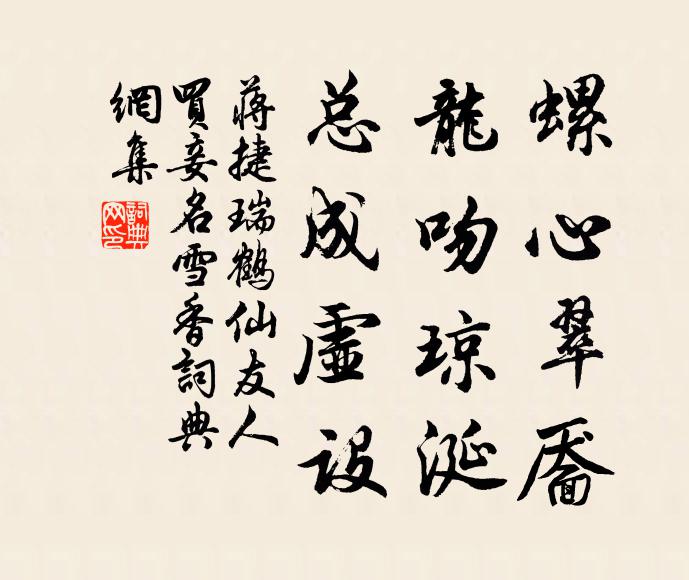 螺心翠靥
龍吻琼涎
总成虚设
蔣捷瑞鶴仙友人
買妾名雪香詞典
網集
詞典网印